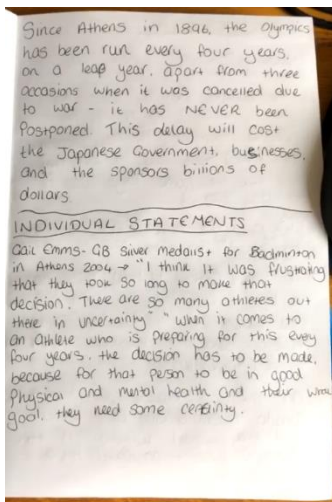 Since Athens in 1896, the Olympics
has been run every four years,
on a leap year, apart from three
occasions when it was cancelled due
to war - it has NEVER been
Postponed. This delay will cost
the Japanese Government, businesses,
and the sponsors billions of
dollars.
INDIVIDUAL STATEMENTS
Gail Emms - GB Silver medalist for Badminton
in Athens 2004 → "I think it was frustrating
that they took so long to make that
decision. There are so many athletes out
there in uncertainty" "When it comes to
an athlete who is preparing for this every
four years, the decision has to be made,
because for that person to be in good
Physical and mental health and their
goal, they need some certainty.